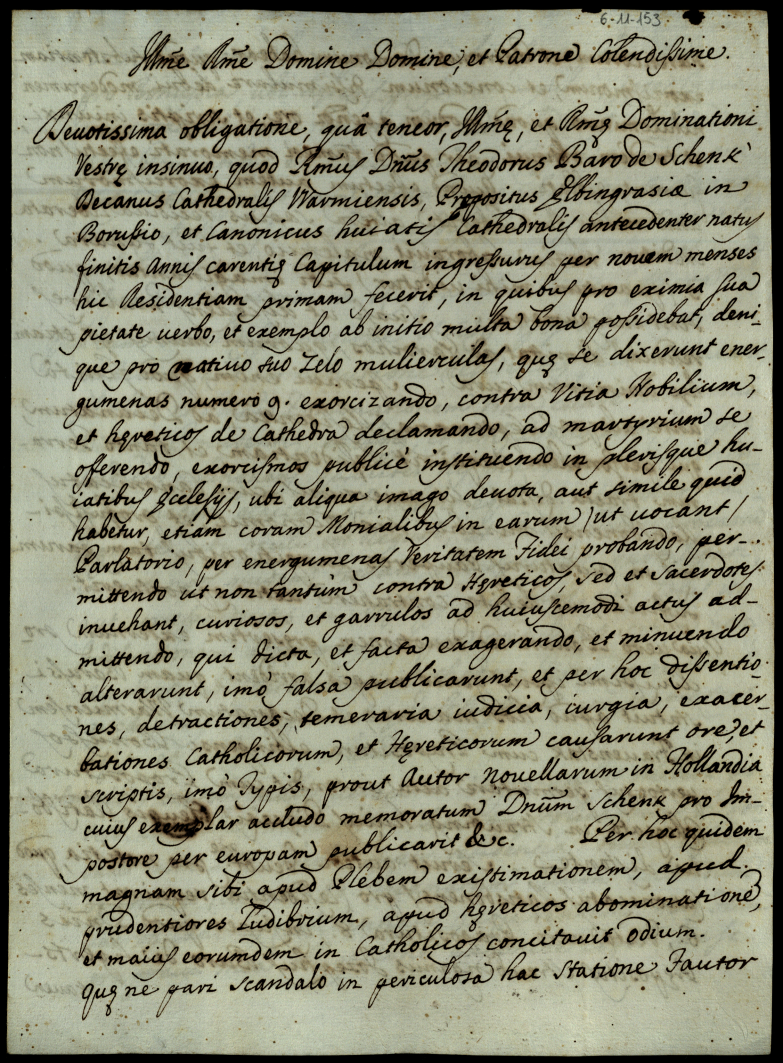 6-11-153
Illm̃e Rm̃e Domine Domine, et Patrone Colendissime.
Devotissima obligatione, quâ teneor, Illm̃ę, et Rm̃ę Dominationi
Vestrę insinuo, quod Rm̃us Dñus Theodorus Baro de Schenk
Decanus Cathedralis Warmiensis, Prępositus Elbingrasiæ in
Borussio, et Canonicus huiatis Cathedralis antecedenter natus
finitis Annis carentię Capitulum ingressurus per novem menses
hic Residentiam primam fecerit, in quibus pro eximia sua
pietate verbo, et exemplo ab initio multa bona possidebat, deni-
que pro nativo suo zelo mulierculas, quę se dixerunt ener-
gumenas numero 9. exorcizando, contra Vitia Nobilium,
et hęreticos de Cathedra declamando, ad martyrium se
offerendo, exorcismos publicè instituendo in plerisque hu-
iatibus Ecclesijs, ubi aliqua imago devota, aut simile quid
habetur, etiam coram Monialibus in earum /ut vocant/
Parlatorio, per energumenas Veritatem Fidei probando, per-
mittendo ut non tantùm contra Hęreticos, sed et Sacerdotes
invehant, curiosos, et garrulos ad huiuscemodi actus ad-
mittendo, qui dicta, et facta exagerando, et minuendo
alterarunt, imò falsa publicarunt, et per hoc dissentio-
nes, detractiones, temeraria iudicia, iurgia, exacer-
bationes Catholicorum, et Hęreticorum causarunt ore, et
scriptis, imò Typis, prout Autor novellarum in Hollandia
cuius exemplar accludo memoratum Dnũm Schenk pro Im-
postore per europam publicarit &c. Per hoc quidem
magnam sibi apud Plebem existimationem, apud
prudentiores Ludibrium, apud hęreticos abominationẽ,
et maius eorumdem in Catholicos concitavit odium.
quę ne pari scandalo in periculosa hac Statione Fautor